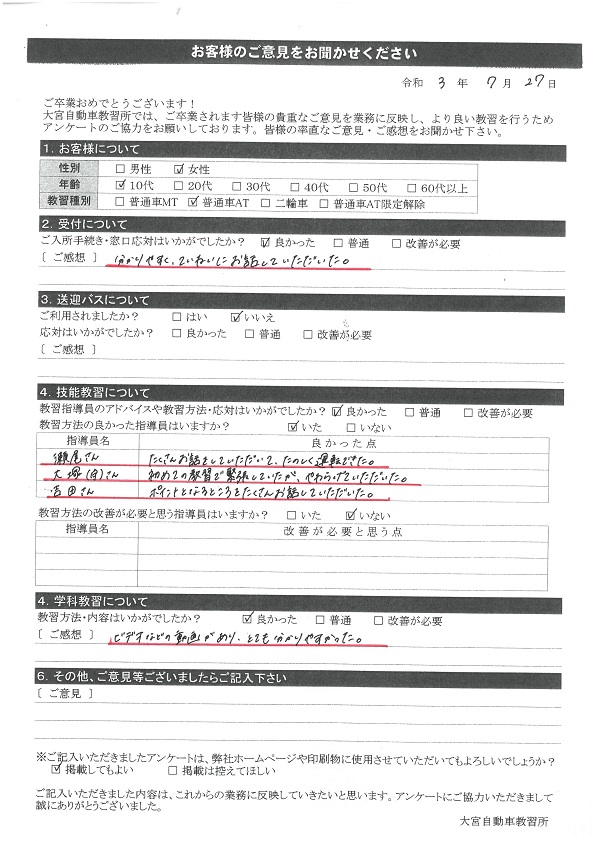 お客様のご意見をお聞かせください
令和 3 年 7 月 27 日
ご卒業おめでとうございます！
大宮自動車教習所では、ご卒業されます皆様の貴重なご意見を業務に反映し、より良い教習を行うため
アンケートのご協力をお願いしております。皆様の率直なご意見・ご感想をお聞かせ下さい。
1. お客様について
性別 □ 男性 ☑ 女性
年齢 ☑ 10代 □ 20代 □ 30代 □ 40代 □ 50代 □ 60代以上
教習種別 □ 普通車MT ☑ 普通車AT □ 二輪車 □ 普通車AT限定解除
2. 受付について
ご入所手続き・窓口応対はいかがでしたか？ ☑ 良かった □ 普通 □ 改善が必要
〔 ご感想 〕 分かりやすく、ていねいにお話していただいた。
3. 送迎バスについて
ご利用されましたか？ □ はい ☑ いいえ
応対はいかがでしたか？ □ 良かった □ 普通 □ 改善が必要
〔 ご感想 〕
4. 技能教習について
教習指導員のアドバイスや教習方法・応対はいかがでしたか？ ☑ 良かった □ 普通 □ 改善が必要
教習方法の良かった指導員はいますか？ ☑ いた □ いない
指導員名 良かった点
瀬尾さん たくさんお話をしていただいて、たのしく運転できた。
大塚(自)さん 初めての教習で緊張していたが、やわらげていただいた。
吉田さん ポイントとなるところをたくさんお話していただいた。
教習方法の改善が必要と思う指導員はいますか？ □ いた ☑ いない
指導員名 改善が必要と思う点
4. 学科教習について
教習方法・内容はいかがでしたか？ ☑ 良かった □ 普通 □ 改善が必要
〔 ご感想 〕 ビデオなどの動画があり、とても分かりやすかった。
6. その他、ご意見等ございましたらご記入下さい
〔 ご意見 〕
※ご記入いただきましたアンケートは、弊社ホームページや印刷物に使用させていただいてもよろしいでしょうか？
☑ 掲載してもよい □ 掲載は控えてほしい
ご記入いただきました内容は、これからの業務に反映していきたいと思います。アンケートにご協力いただきまして
誠にありがとうございました。
大宮自動車教習所